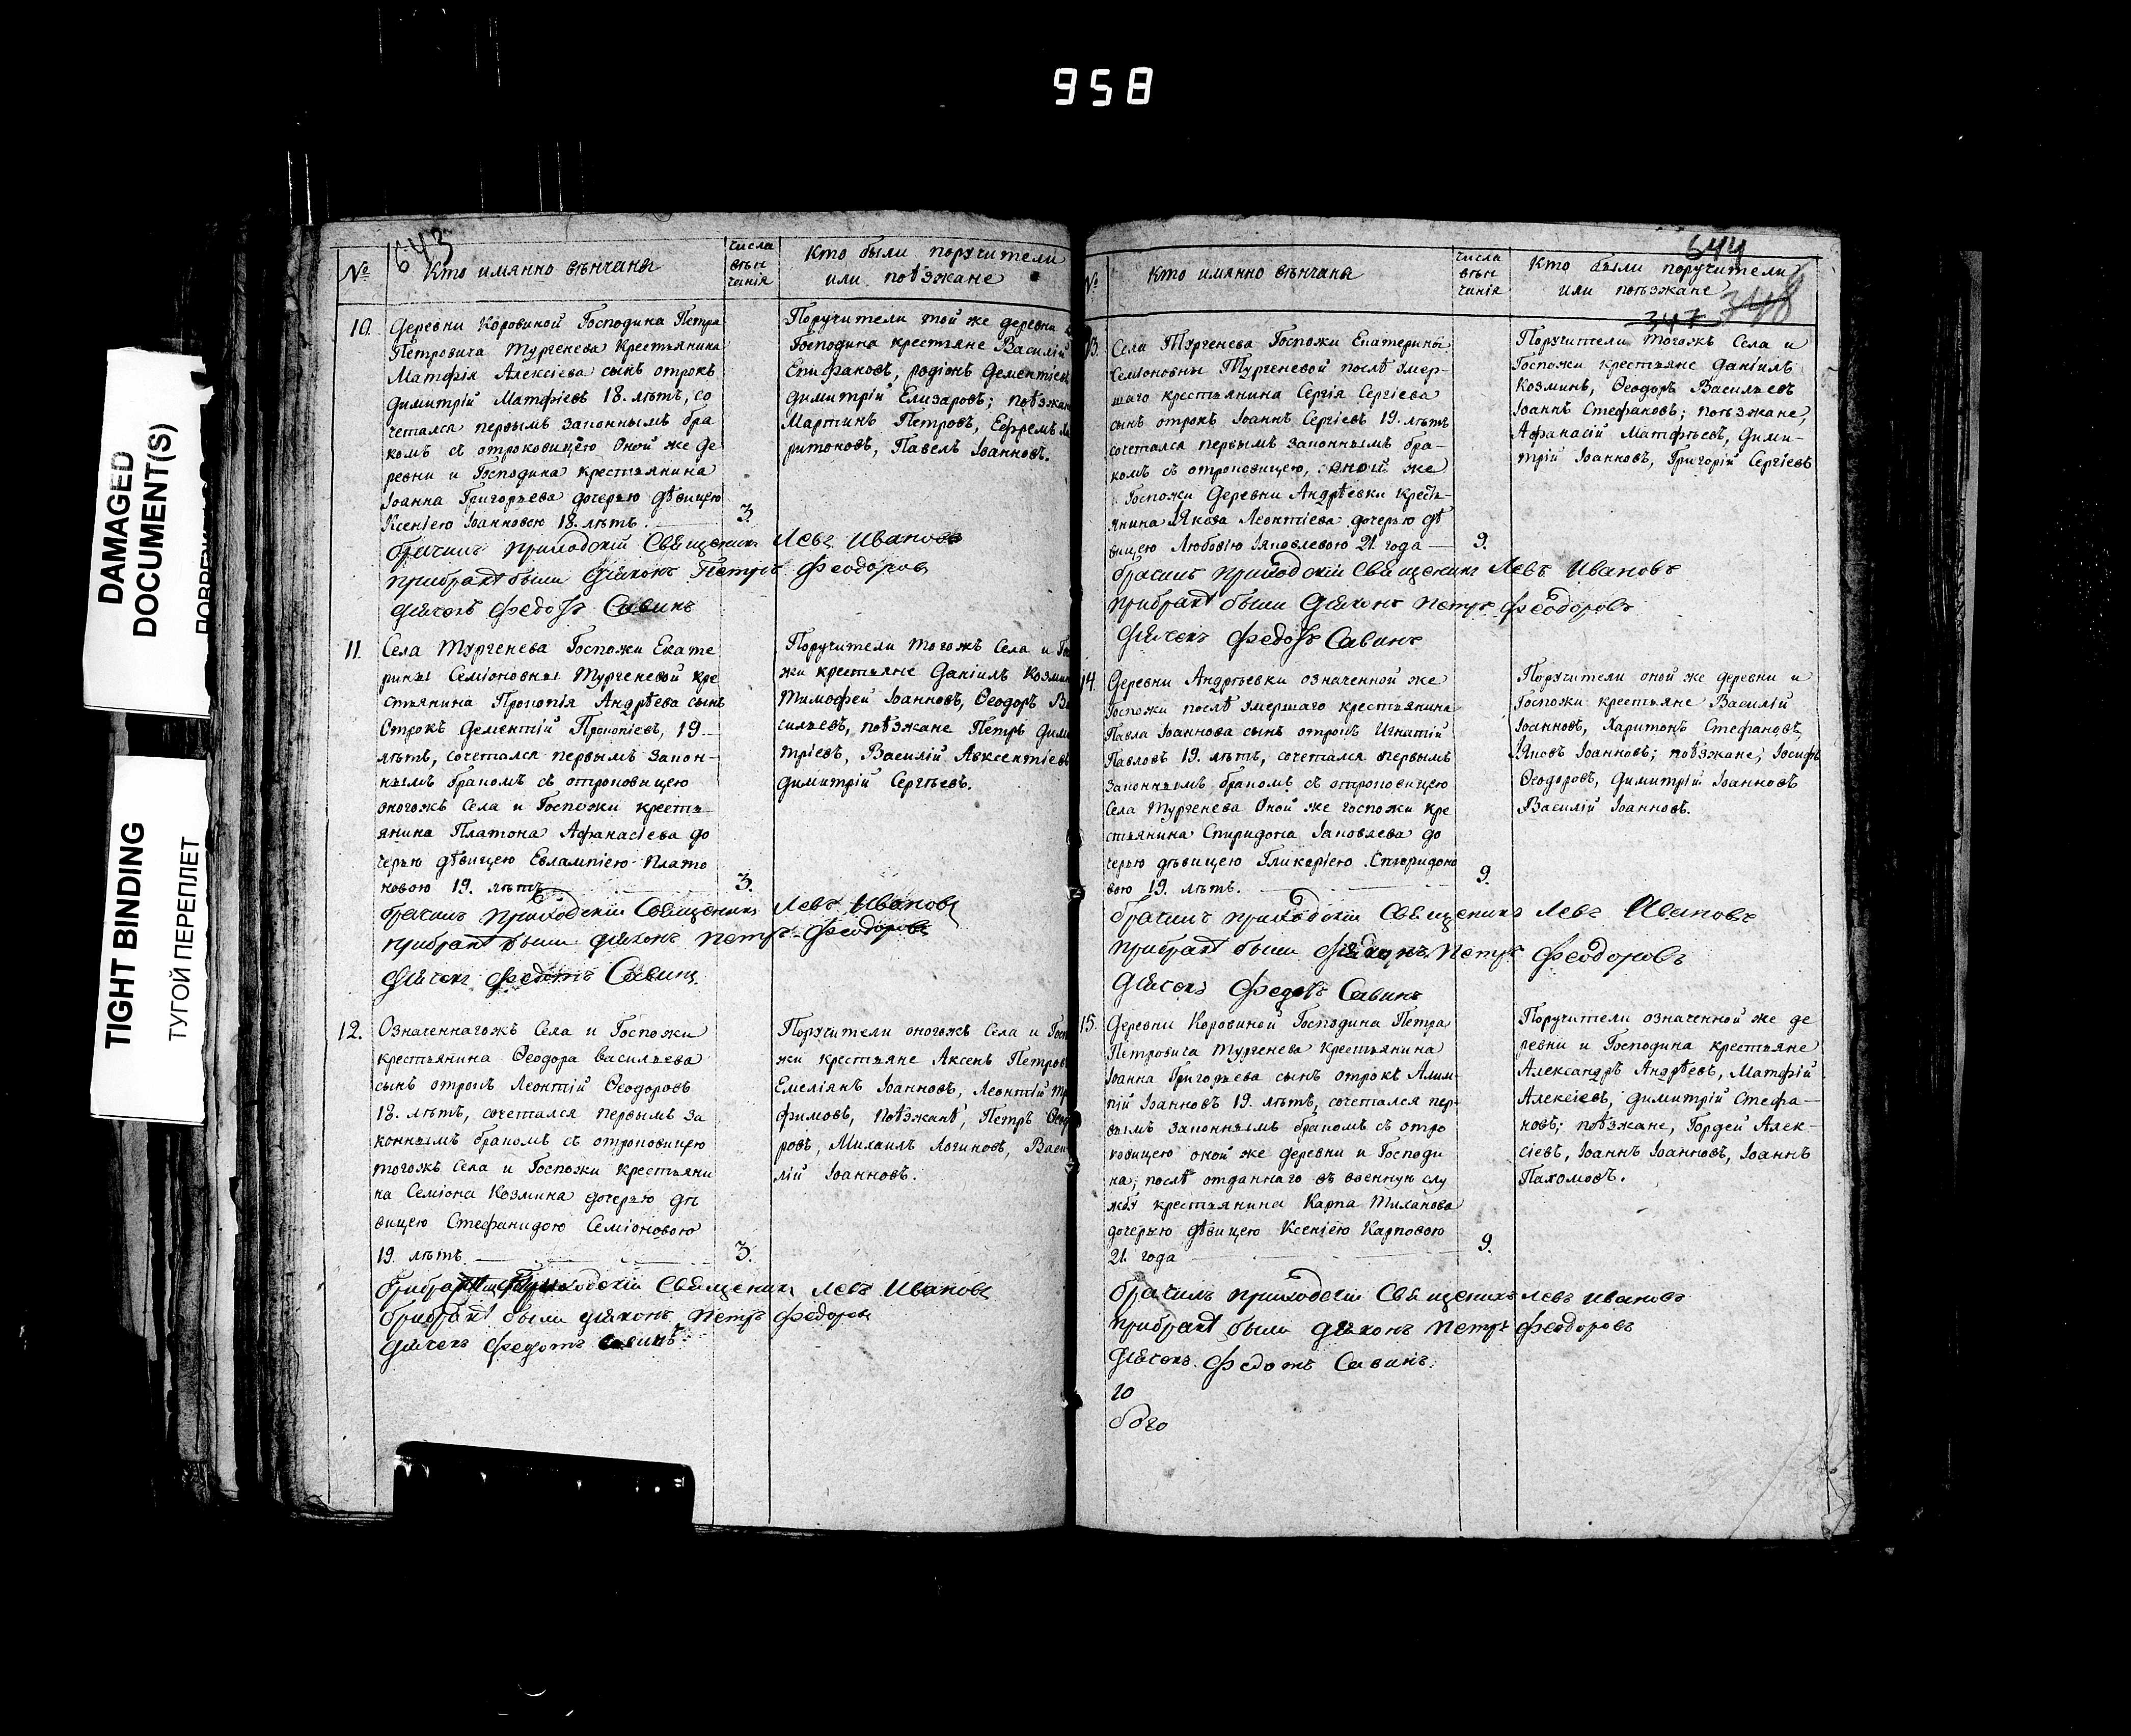 958
DAMAGED
DOCUMENT(S)
TIGHT BINDING
ТУГОЙ ПЕРЕПЛЕТ
643
№
Кто имянно вѣнчаны
числа
вѣн
чанія
Кто были поручители
или поѣзжане
10.
Деревни Коровиной Господина Петра
Петровича Тургенева Крестьянина
Матфія Алексіева сынъ отрокъ
Димитрій Матфіевъ 18. лѣтъ, со
четался первымъ законнымъ бра
комъ съ отроковицею Оной же де
ревни и Господина крестьянина
Іоанна Григорьева дочерью дѣвицею
Ксеніею Іоанновою 18. лѣтъ.
3.
Поручители той же деревни
Господина крестьяне Василій
Епифановъ, родіонъ Дементіевъ
Димитрій Елизаровъ; поѣзжан
Мартинъ Петровъ, Ефремъ Ха
ритоновъ, Павелъ Іоанновъ.
брачилъ приходскій Священикъ Левъ Ивановъ
прибракѣ были діяконъ Петръ Феодоровъ
дячекъ Федотъ Савинъ
11.
Села Тургенева Госпожи Екате
рины Семіоновны Тургеневой кре
стьянина Прокопія Андрѣева сынъ
Отрокъ Дементій Прокопіевъ, 19.
лѣтъ, сочетался первымъ закон-
нымъ бракомъ съ отроковицею
оногожъ Села и Госпожи кресть
янина Платона Афанасіева до
черью дѣвицею Евлампіею Плато
новою 19. лѣтъ
3.
Поручители тогожъ Села и Го
жи крестьяне Даніилъ Козмин
Тимофей Іоанновъ, Ѳеодоръ Ва
сильевъ, поѣзжане Петръ Дими
тріевъ, Василій Авксентіевъ
Димитрій Сергѣевъ.
брачилъ приходскій Священикъ Левъ Ивановъ
прибракѣ были діяконъ Петръ Феодоровъ
дячекъ Федотъ Савинъ
12.
Означеннагожъ Села и Госпожи
крестьянина Ѳеодора васильева
сынъ отрокъ Леонтій Ѳеодоровъ
18. лѣтъ, сочетался первымъ за
коннымъ бракомъ съ отроковицею
тогожъ Села и Госпожи крестьяни
на Семіона Козмина дочерью дѣ
вицею Стефанидою Семіоновою
19. лѣтъ
3.
Поручители оногожъ Села и Госп
жи крестьяне Аксенъ Петровъ
Емеліянъ Іоанновъ, Леонтій Тр
фимовъ, поѣзжанѣ, Петръ Ѳеод
ровъ, Михаилъ Логиновъ, Васи
лій Іоанновъ.
Священикъ Левъ Ивановъ
прибракѣ были діяконъ Петръ Федоровъ
дячекъ Федотъ Савинъ
644
348
347
№
Кто имянно вѣнчаны
числа
вѣн
чанія
Кто были поручители
или поѣзжане
13.
Села Тургенева Госпожи Екатерины
Семіоновны Тургеневой послѣ умер-
шаго крестьянина Сергія Сергіева
сынъ отрокъ Іоаннъ Сергіевъ 19. лѣтъ
сочетался первымъ законнымъ бра-
комъ съ отроковицею, оной же
Госпожи Деревни Андрѣевки кресть-
янина Іякова Леонтіева дочерью дѣ
вицею Любовію Іяковлевою 21. года
9.
Поручители тогожъ Села и
Госпожи крестьяне Даніилъ
Козминъ, Ѳеодоръ Васильевъ
Іоаннъ Стефановъ; поѣзжане,
Афанасій Матфѣевъ, Дими-
трій Іоанновъ, Григорій Сергіевъ
брачилъ приходскій Священикъ Левъ Ивановъ
прибракѣ были діяконъ Петръ Феодоровъ
дячекъ Федотъ Савинъ
14.
Деревни Андрѣевки означенной же
Госпожи послѣ умершаго крестьянина
Павла Іоаннова сынъ отрокъ Игнатій
Павловъ 19. лѣтъ, сочетался первымъ
законнымъ бракомъ съ отроковицею
Села Тургенева Оной же госпожи кре
стьянина Спиридона Іаковлева до
черью дѣвицею Гликеріею Спиридоно
вою 19. лѣтъ.
9.
Поручители оной же деревни и
Госпожи крестьяне Василій
Іоанновъ, Харитонъ Стефановъ,
Іяковъ Іоанновъ; поѣзжане, Іосифъ
Ѳеодоровъ, Димитрій Іоанновъ
Василій Іоанновъ.
брачилъ приходскій Священикъ Левъ Ивановъ
прибракѣ были діяконъ Петръ Феодоровъ
дячекъ Федотъ Савинъ
15.
Деревни Коровиной Господина Петра
Петровича Тургенева Крестьянина
Іоанна Григорьева сынъ отрокъ Алим-
пій Іоанновъ 19. лѣтъ, сочетался пер-
вымъ законнымъ бракомъ съ отро
ковицею оной же деревни и Господи
на, послѣ отданнаго въ военную слу
жбу крестьянина Карпа Тиханова
дочерью дѣвицею Ксеніею Карповою
21. года
9.
Поручители означенной же де
ревни и Господина крестьяне
Александръ Андрѣевъ, Матфій
Алексіевъ, Димитрій Стефа-
новъ; поѣзжане, Гордей Алек-
сіевъ, Іоаннъ Іоанновъ, Іоаннъ
Пахомовъ.
брачилъ приходскій Священикъ Левъ Ивановъ
прибракѣ были діяконъ Петръ Феодоровъ
дячекъ Федотъ Савинъ
го
бого